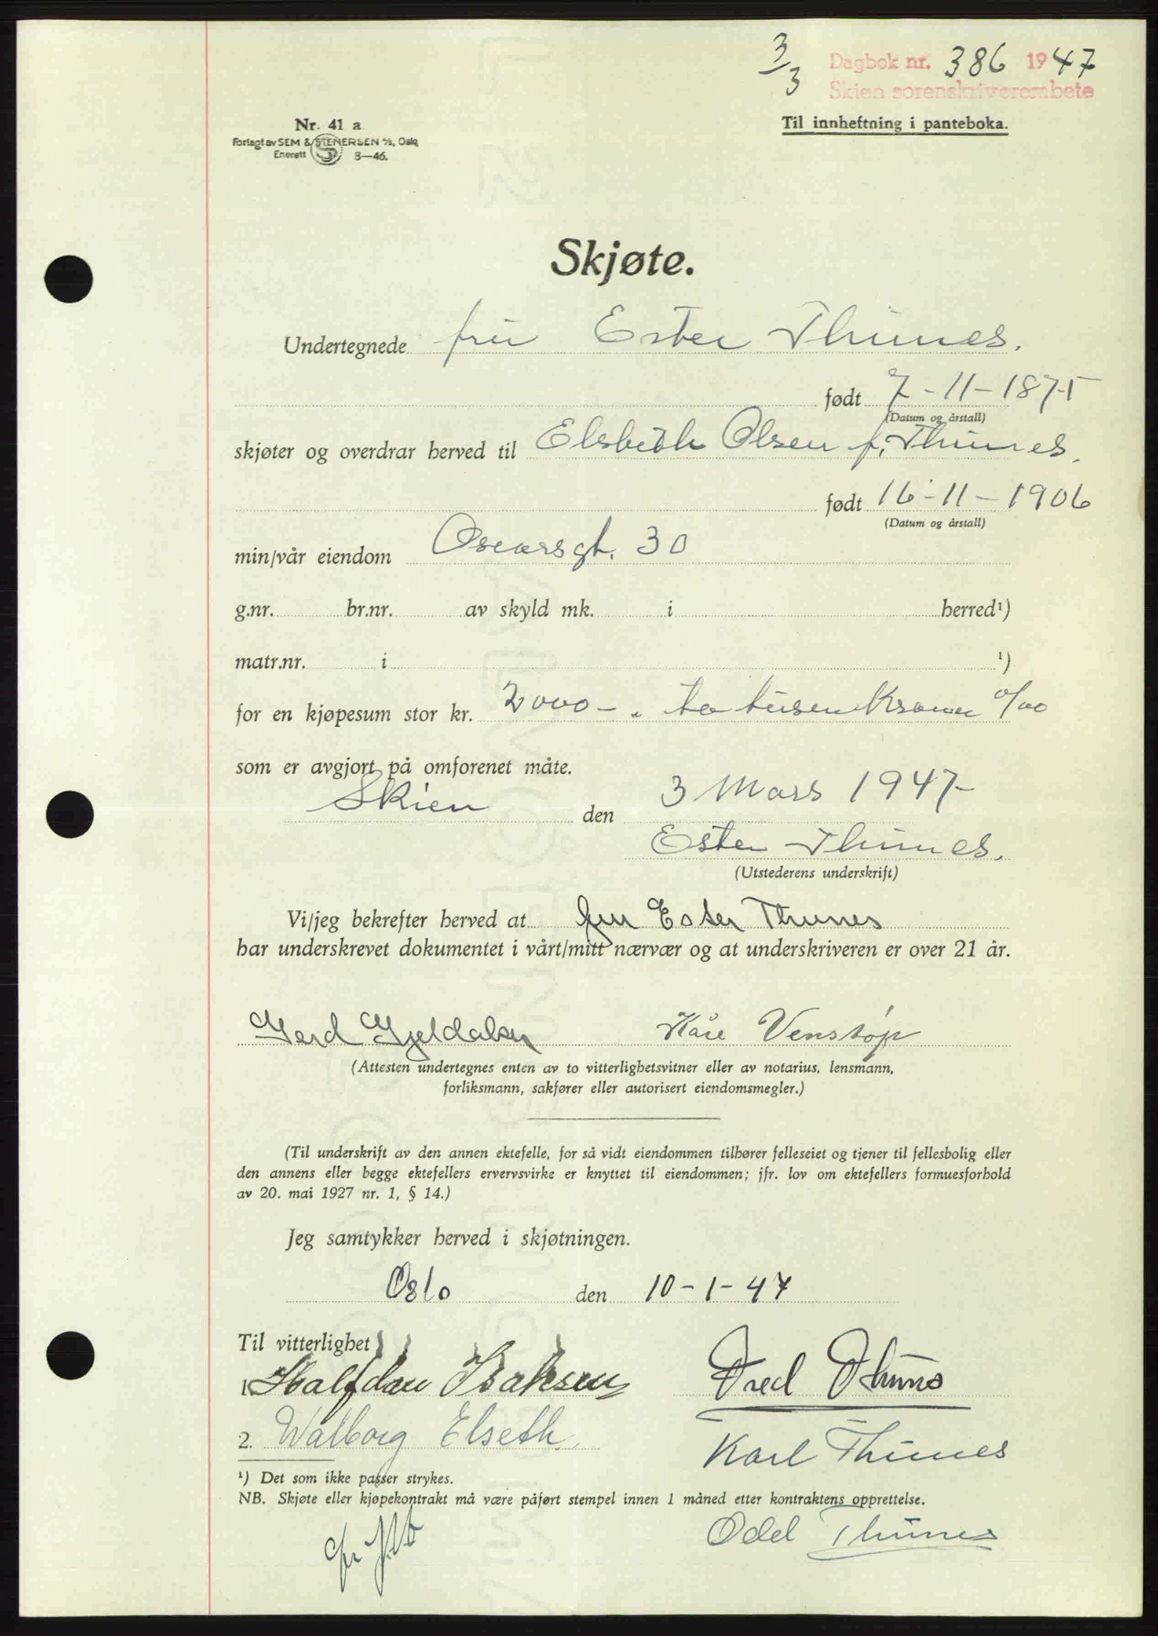 3/3 Dagbok nr. 386 1947
Skien sorenskriverembete
Til innheftning i panteboka.
Nr. 41 a
Forlagt av SEM & STENERSEN A/S, Oslo
Enerett 8—46.
Skjøte.
Undertegnede fru Ester Thunes.
født 7-11-1875
(Datum og årstall)
skjøter og overdrar herved til Elsbeth Olsen f. Thunes.
født 16-11-1906
(Datum og årstall)
min/vår eiendom Oscarsgt. 30
g.nr. br.nr. av skyld mk. i herred¹)
matr.nr. i ¹)
for en kjøpesum stor kr. 2000-. to tusen Kroner 0/00
som er avgjort på omforenet måte.
Skien den 3 Mars 1947-
Ester Thunes.
(Utstederens underskrift)
Vi/jeg bekrefter herved at fru Ester Thunes
har underskrevet dokumentet i vårt/mitt nærvær og at underskriveren er over 21 år.
Gerd Gjeldalsen Kåre Venstøp
(Attesten undertegnes enten av to vitterlighetsvitner eller av notarius, lensmann,
forliksmann, sakfører eller autorisert eiendomsmegler.)
(Til underskrift av den annen ektefelle, for så vidt eiendommen tilhører felleseiet og tjener til fellesbolig eller
den annens eller begge ektefellers ervervsvirke er knyttet til eiendommen; jfr. lov om ektefellers formuesforhold
av 20. mai 1927 nr. 1, § 14.)
Jeg samtykker herved i skjøtningen.
Oslo den 10-1-47
Til vitterlighet
1. Halfdan Isaksen Fred Thunes
2. Walborg Elseth. Karl Thunes
¹) Det som ikke passer strykes.
NB. Skjøte eller kjøpekontrakt må være påført stempel innen 1 måned etter kontraktens opprettelse.
Odd Thunes